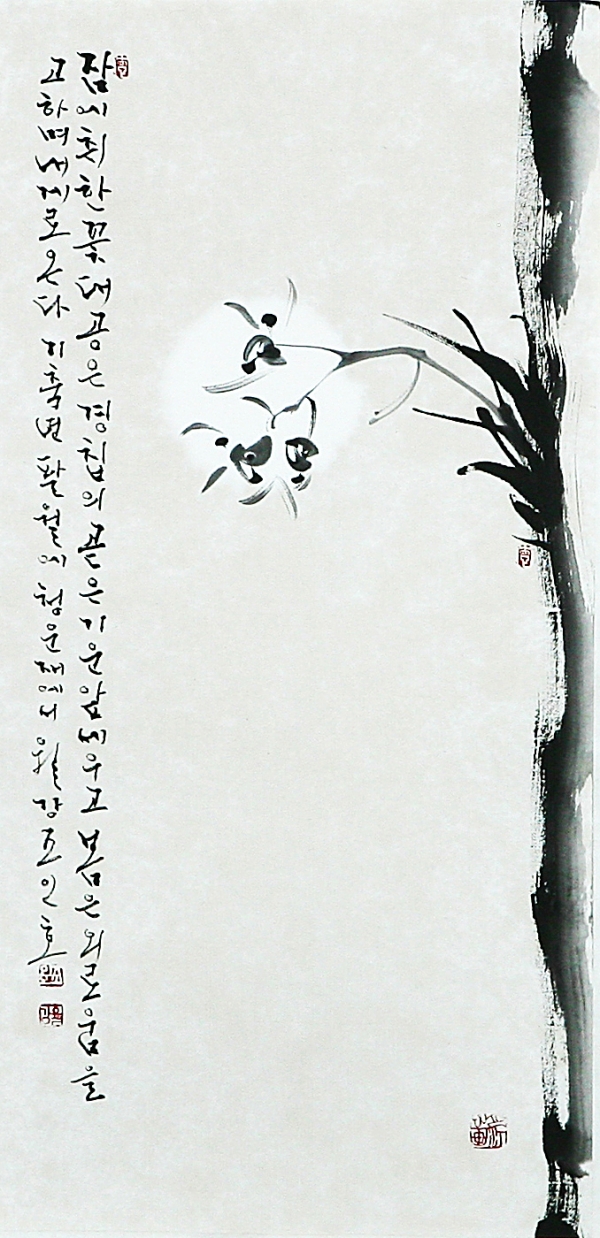 잠에 취한 꽃대공은 경칩의 곧은 기운 앞세우고 봄은 외로움을
고하며 내게로 온다 기축년 팔월에 청운재에서 월강 조인호